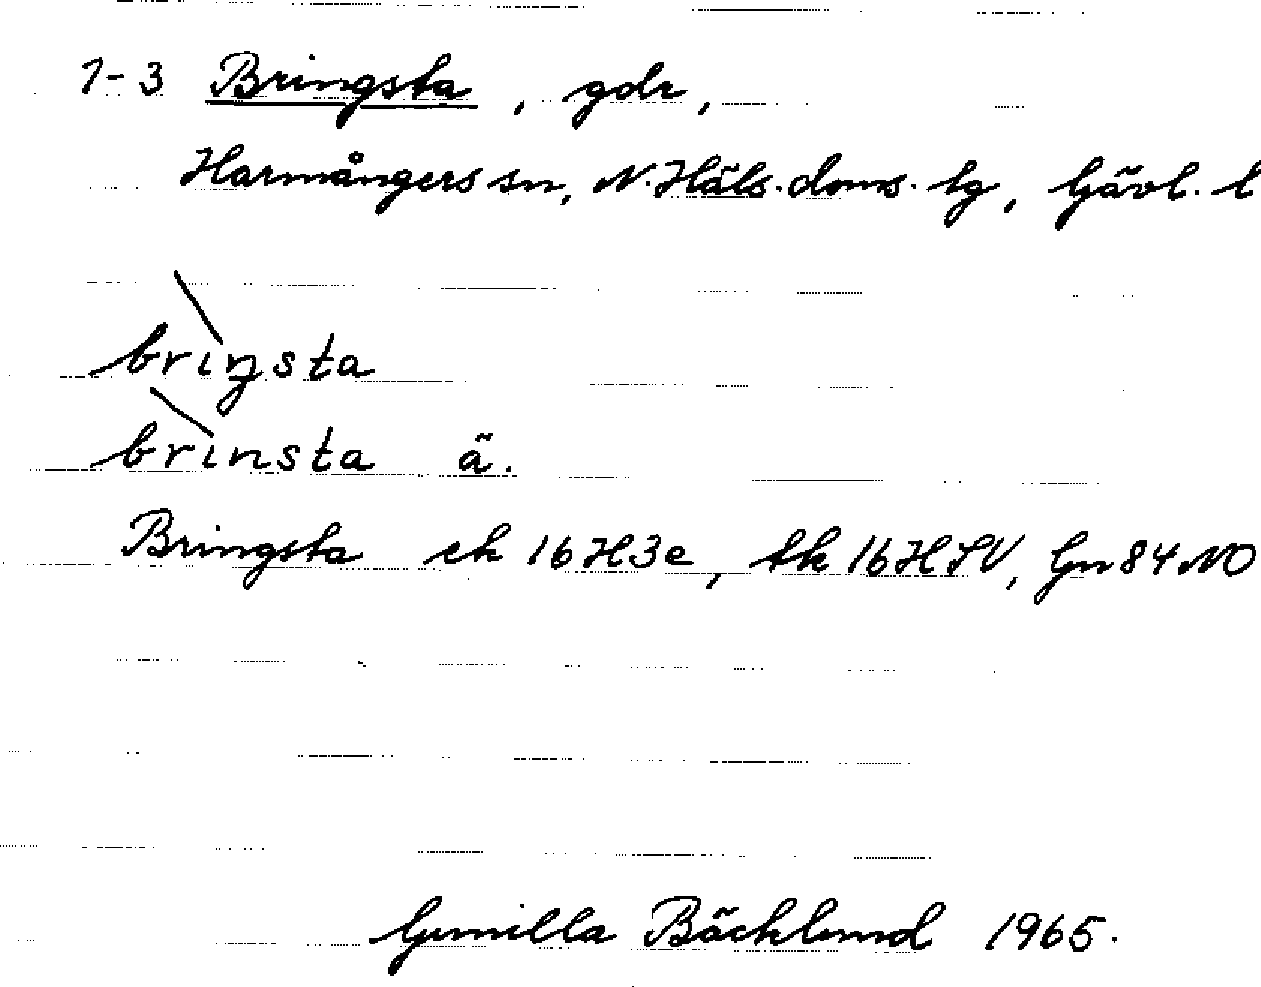 1-3 Bringsta, gdr,
Harmångers sn, N. Häls. doms. lg, Gävl. l
briŋsta
brinsta ä.
Bringsta ek 16H3e, tk 16HSV, Gn 84 NO
Gunilla Bäcklund 1965.